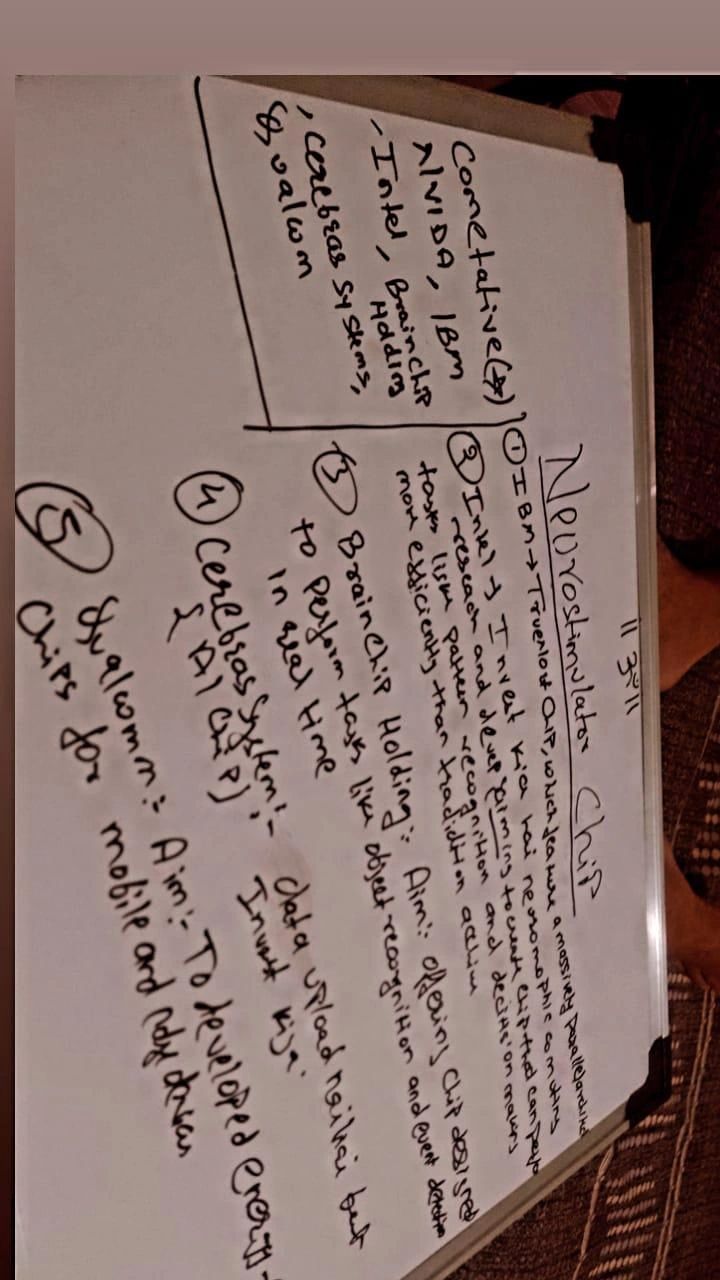 ॥ ॐ ॥
Neurostimulator Chip
Cometative(
NVIDA, IBM
, Intel, Brainchip
Holding
, Cerebras Systems,
Qualcom
① IBM → Truenorth Chip, which feature a massively parallel
② Intel → Invest kia hai neromophic comuting
reseach and devep aiming to create chip that can
tasks like pattern recognition and decision making
more efficiently than tradidition
③ Brainchip Holding:- Aim:- offering chip designed
to perform tasks like object recognition and event detection
in real time
④ Cerebras System:- data upload nai hai but
{ AI Chip) Invest kiya.
⑤ Qualcomm:- Aim:- To developed energy-
Chips for mobile and